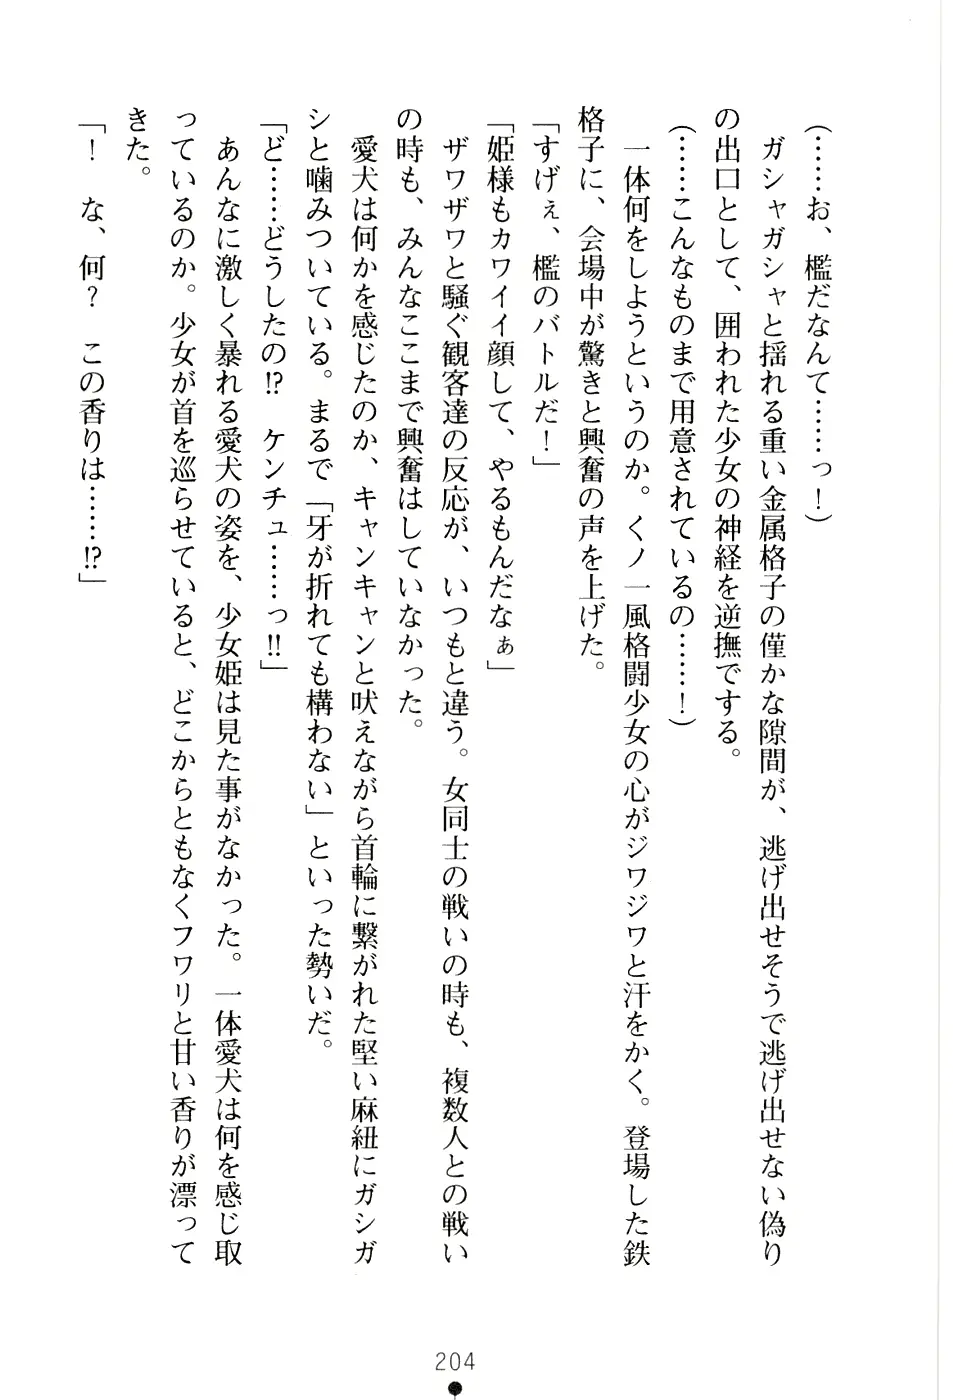 (……お、檻だなんて……っ!)
　ガシャガシャと揺れる重い金属格子の僅かな隙間が、逃げ出せそうで逃げ出せない偽り
の出口として、囲われた少女の神経を逆撫でする。
(……こんなものまで用意されているの……!)
　一体何をしようというのか。くノ一風格闘少女の心がジワジワと汗をかく。登場した鉄
格子に、会場中が驚きと興奮の声を上げた。
「すげぇ、檻のバトルだ!」
「姫様もカワイイ顔して、やるもんだなぁ」
　ザワザワと騒ぐ観客達の反応が、いつもと違う。女同士の戦いの時も、複数人との戦い
の時も、みんなここまで興奮はしていなかった。
　愛犬は何かを感じたのか、キャンキャンと吠えながら首輪に繋がれた堅い麻紐にガシガ
シと噛みついている。まるで「牙が折れても構わない」といった勢いだ。
「ど……どうしたの!?　ケンチュ……っ!!」
　あんなに激しく暴れる愛犬の姿を、少女姫は見た事がなかった。一体愛犬は何を感じ取
っているのか。少女が首を巡らせていると、どこからともなくフワリと甘い香りが漂って
きた。
「!　な、何?　この香りは……!?」
204